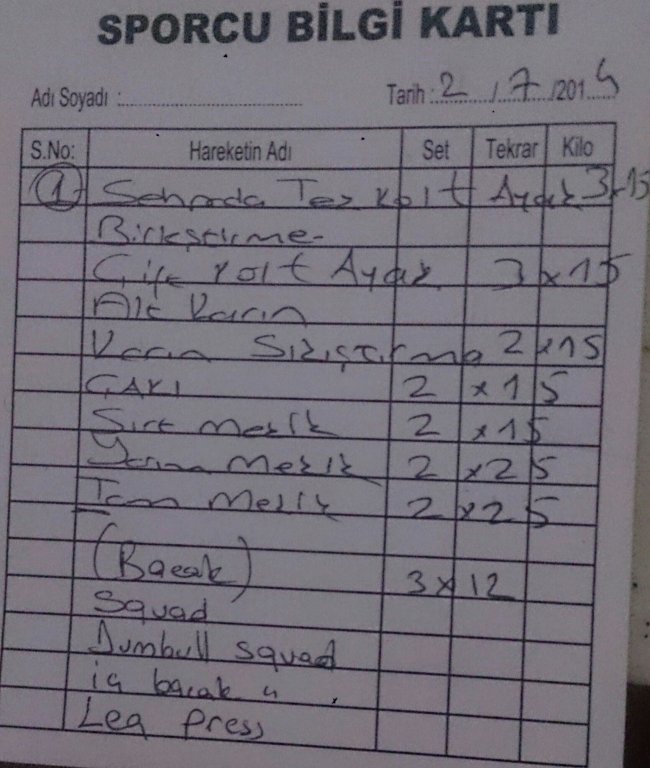 SPORCU BİLGİ KARTI
Adı Soyadı :........................ Tarih : 2 / 7 /201
S.No: Hareketin Adı Set Tekrar Kilo
1 Sehpada Tek kolt Ayak 3x15
Birleştirme-
Çift kolt Ayak 3 x 15
Alt Karın
Karın Sıkıştırma 2 x 15
ÇAKI 2 x 15
Sırt mekik 2 x 15
Yarım Mekik 2 x 25
Tam Mekik 2 x 25
(Bacak) 3 x 12
Squad
Dumbull squad
iç bacak "
Leg Press